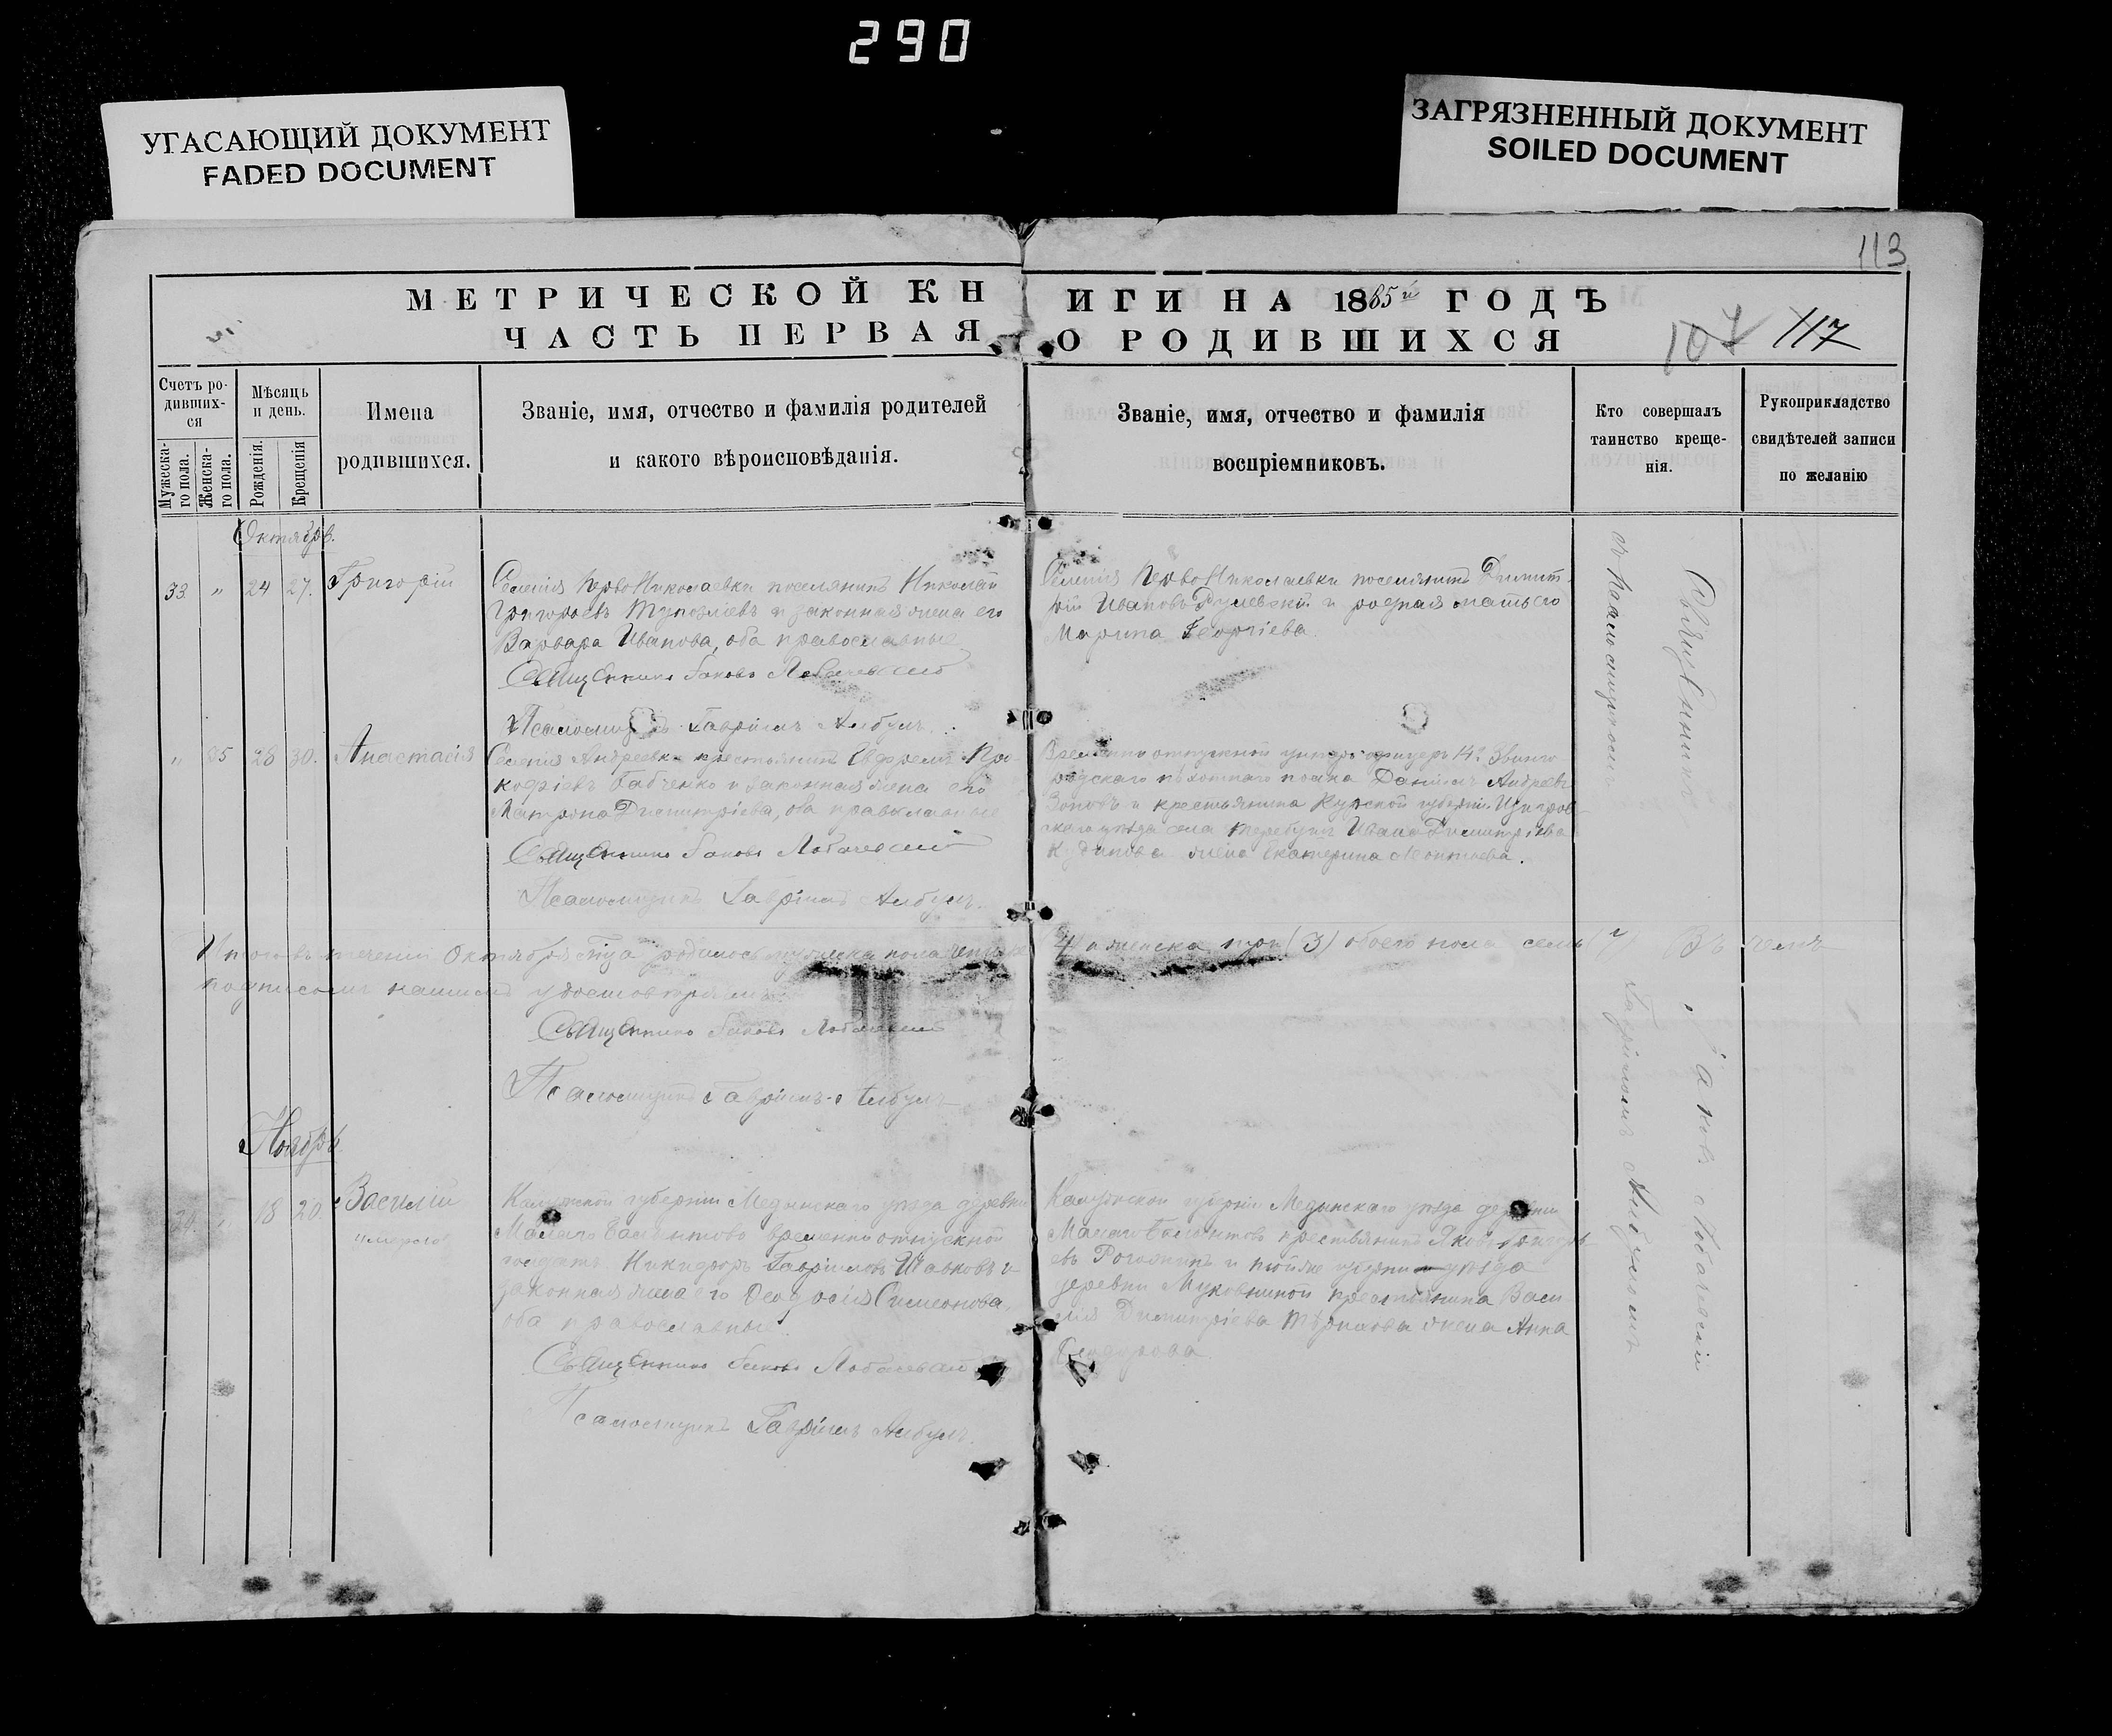 290
УГАСАЮЩИЙ ДОКУМЕНТ
FADED DOCUMENT
ЗАГРЯЗНЕННЫЙ ДОКУМЕНТ
SOILED DOCUMENT
113
МЕТРИЧЕСКОЙ КНИГИ НА 1885й ГОДЪ
ЧАСТЬ ПЕРВАЯ О РОДИВШИХСЯ
107 117
Счетъ ро-
дивших-
ся
Мужеска-
го пола.
Женска-
го пола.
Мѣсяцъ
и день.
Рожденія.
Крещенія
Имена
родившихся.
Званіе, имя, отчество и фамилія родителей
и какого вѣроисповѣданія.
Званіе, имя, отчество и фамилія
воспріемниковъ.
Кто совершалъ
таинство креще-
нія.
Рукоприкладство
свидѣтелей записи
по желанію
Октябрь.
33 " 24 27. Григорій
Селенія Первониколаевки поселянинъ Николай
Григорьевъ и законная жена его
Варвара Иванова, оба православные
Священникъ Іаковъ Лобачевскій
Псаломщикъ Гавріилъ Албулъ
Селенія Первониколаевки поселянинъ Димит-
рій Ивановъ и родная мать его
Марина Георгіева.
" 35 28 30. Анастасія
Селенія Андреевки крестьянинъ Евфремъ Про-
кофіевъ Бабченко и законная жена его
Матрона Димитріева, оба православные
Священникъ Іаковъ Лобачевскій
Псаломщикъ Гавріилъ Албулъ.
Временно отпускной унтеръ-офицеръ 14го
пѣхотнаго полка Даніилъ Андреевъ
и крестьянина Курской губерніи Щигров-
скаго уѣзда села Теребужъ Ивана Димитріева
жена Екатерина Леонтьева.
Итого въ теченіи Октября мѣсяца родилось мужеска пола четыре (4) и женска три (3) обоего пола семь (7) Въ чемъ
подписомъ нашимъ удостовѣряемъ
Священникъ Іаковъ Лобачевскій
Псаломщикъ Гавріилъ Албулъ
Ноябрь.
" 18 20. Василій
умеръ
Калужской губерніи Медынскаго уѣзда деревни
Малаго временно отпускной
солдатъ Никифоръ Гавріиловъ и
законная жена его Ѳеодосія Симеонова,
оба православные.
Священникъ Іаковъ Лобачевскій
Псаломщикъ Гавріилъ Албулъ.
Калужской губерніи Медынскаго уѣзда деревни
Малаго крестьянинъ Яковъ
и той же губерніи и уѣзда
деревни крестьянина Васи-
лія Димитріева жена Анна
Ѳеодорова
Священникъ Іаковъ Лобачевскій
съ псаломщикомъ Гавріиломъ Албуломъ